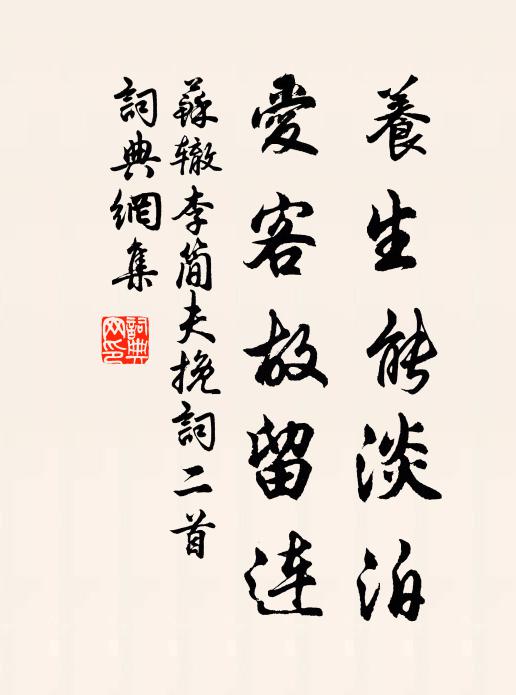 養生能淡泊
愛客故留連
蘇辙李簡夫挽詞二首
詞典網集
詞典網印